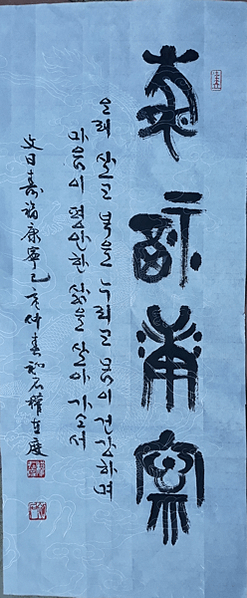 壽福康寧
오래 살고 복을 누리고 몸이 건강하며
마음이 편안한 삶을 살아 가소서
文曰壽福康寧己亥仲春和石權